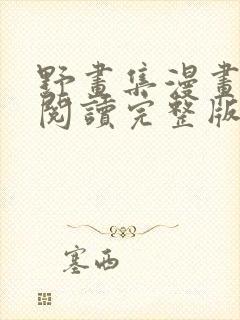 野畫集漫畫
閱讀完整版
塞西